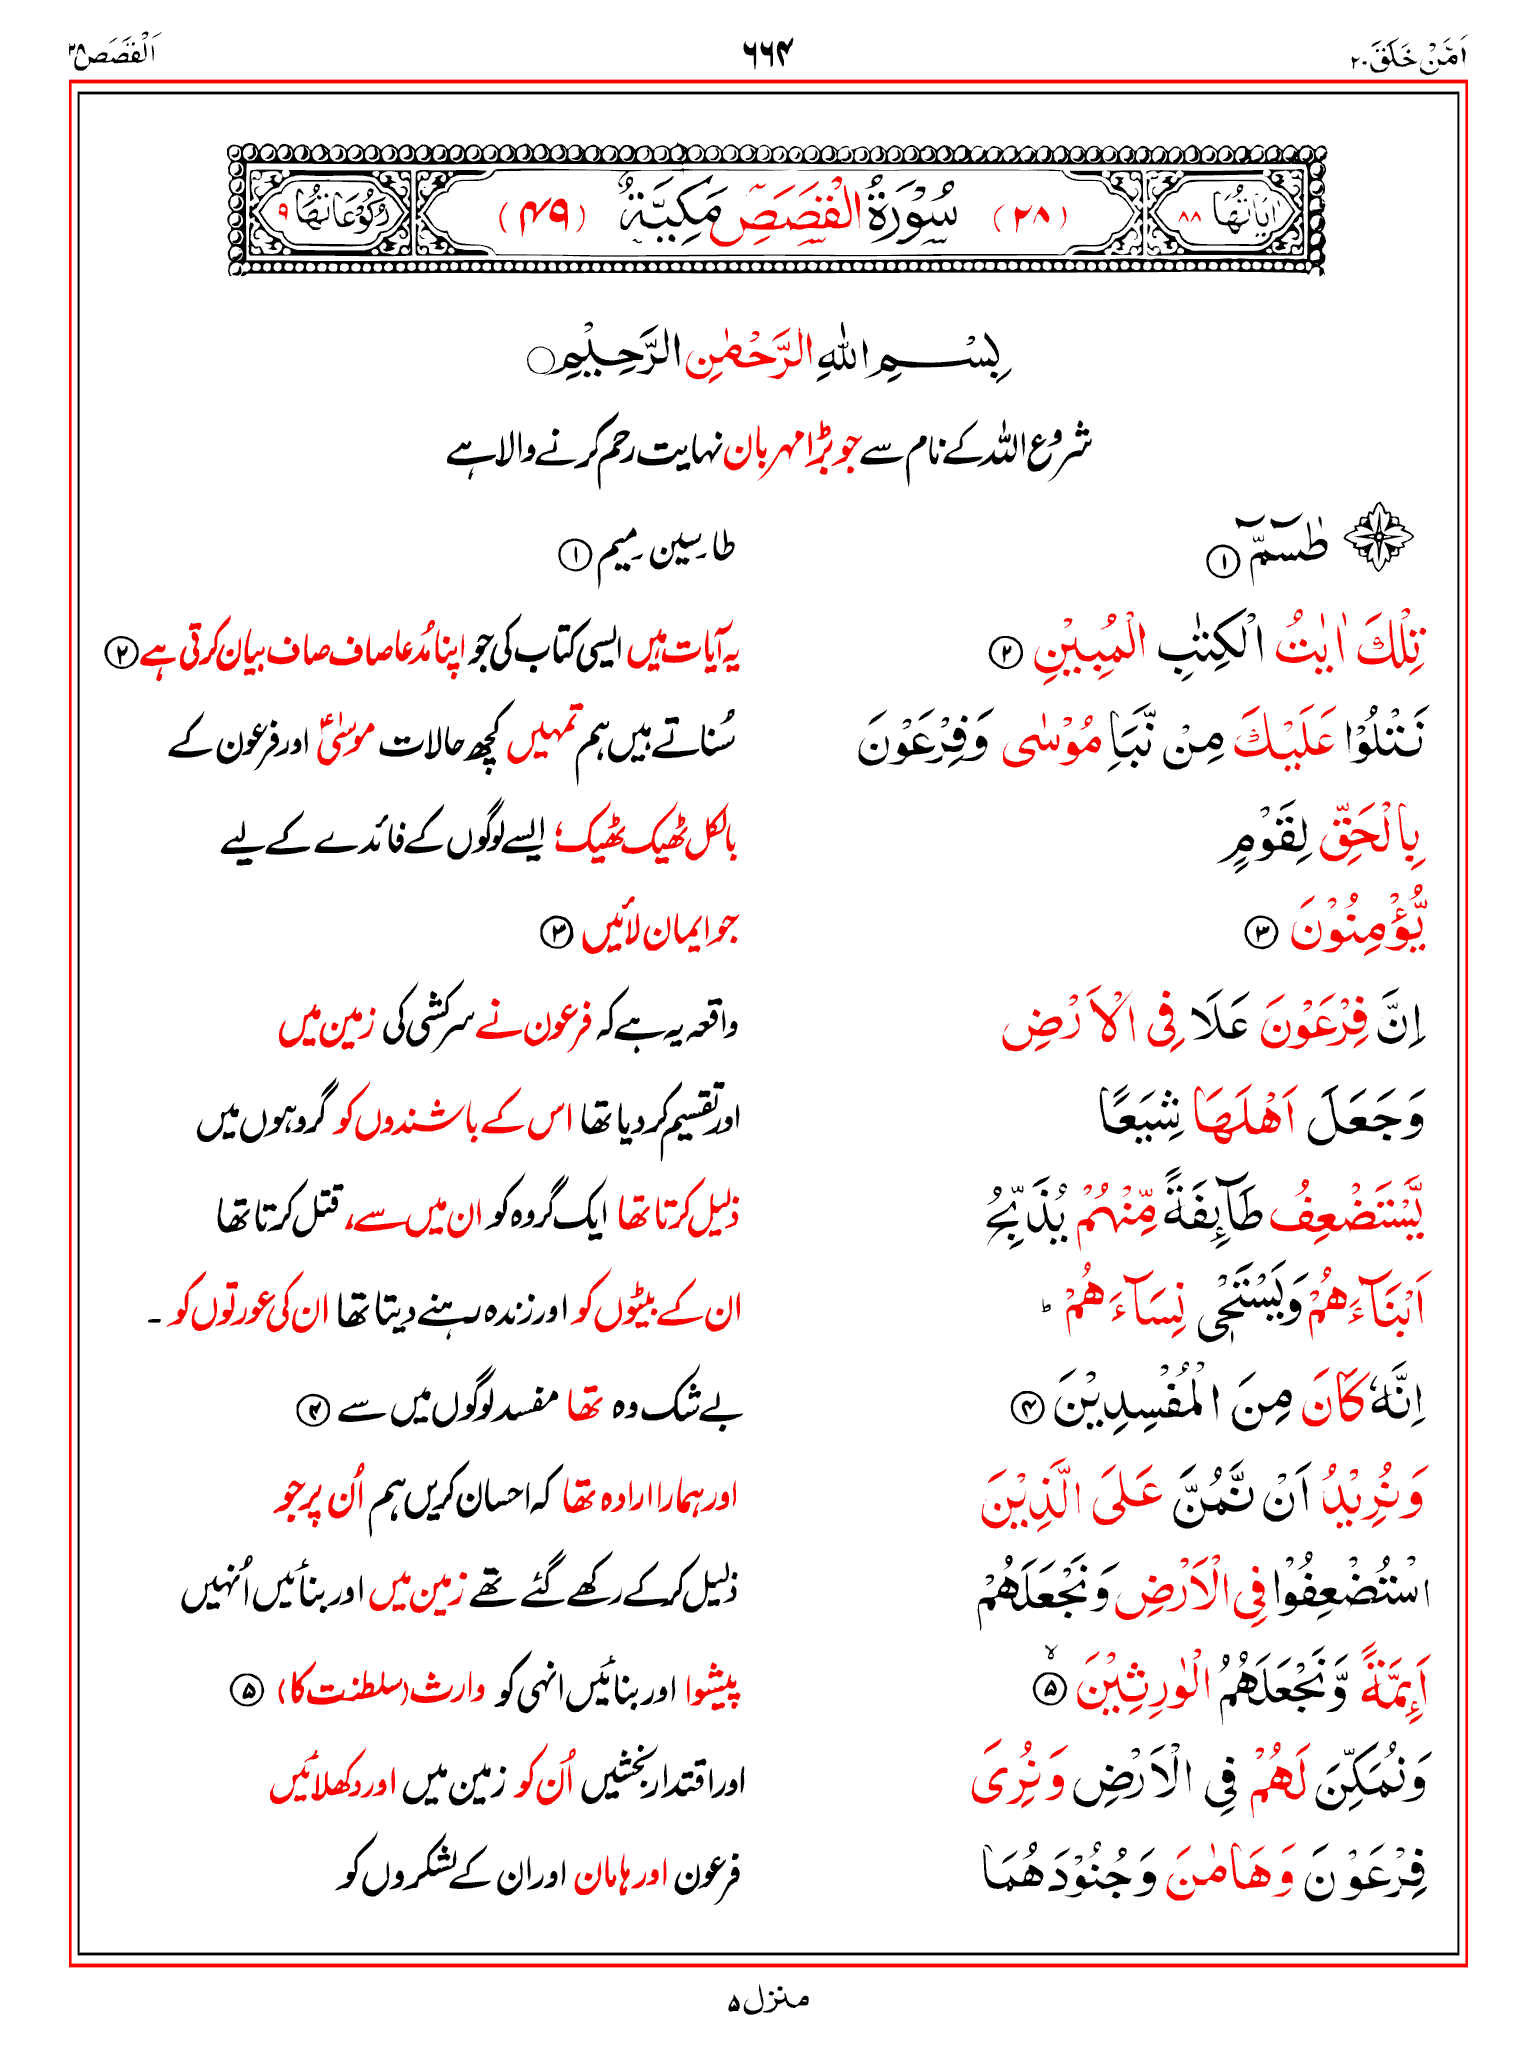 اَمَّنْ خَلَقَ ۲۰ ۶۶۴ اَلْقَصَص ۲۸
اٰيَاتُهَا ۸۸ (۲۸) سُوْرَةُ الْقَصَصِ مَكِّيَّةٌ (۴۹) رُكُوْعَاتُهَا ۹
بِسْمِ اللّٰهِ الرَّحْمٰنِ الرَّحِيْمِ ○
شروع اللہ کے نام سے جو بڑا مہربان نہایت رحم کرنے والا ہے
طٰسٓمّٓ ۱ طا۔ سین۔ میم ۱
تِلْكَ اٰيٰتُ الْكِتٰبِ الْمُبِيْنِ ۲ یہ آیات ہیں ایسی کتاب کی جو اپنا مُدعا صاف صاف بیان کرتی ہے ۲
نَتْلُوْا عَلَيْكَ مِنْ نَّبَاِ مُوْسٰى وَفِرْعَوْنَ سُناتے ہیں ہم تمہیں کچھ حالات موسٰیؑ اور فرعون کے
بِالْحَقِّ لِقَوْمٍ بالکل ٹھیک ٹھیک، ایسے لوگوں کے فائدے کے لیے
يُّؤْمِنُوْنَ ۳ جو ایمان لائیں ۳
اِنَّ فِرْعَوْنَ عَلَا فِى الْاَرْضِ واقعہ یہ ہے کہ فرعون نے سرکشی کی زمین میں
وَجَعَلَ اَهْلَهَا شِيَعًا اور تقسیم کر دیا تھا اس کے باشندوں کو گروہوں میں
يَّسْتَضْعِفُ طَآىِٕفَةً مِّنْهُمْ يُذَبِّحُ ذلیل کرتا تھا ایک گروہ کو ان میں سے، قتل کرتا تھا
اَبْنَآءَهُمْ وَيَسْتَحْىٖ نِسَآءَهُمْ ؕ ان کے بیٹوں کو اور زندہ رہنے دیتا تھا ان کی عورتوں کو ۔
اِنَّهٗ كَانَ مِنَ الْمُفْسِدِيْنَ ۴ بے شک وہ تھا مفسد لوگوں میں سے ۴
وَنُرِيْدُ اَنْ نَّمُنَّ عَلَى الَّذِيْنَ اور ہمارا ارادہ تھا کہ احسان کریں ہم اُن پر جو
اسْتُضْعِفُوْا فِى الْاَرْضِ وَنَجْعَلَهُمْ ذلیل کر کے رکھے گئے تھے زمین میں اور بنائیں اُنہیں
اَىِٕمَّةً وَّنَجْعَلَهُمُ الْوٰرِثِيْنَ ۙ ۵ پیشوا اور بنائیں انہی کو وارث (سلطنت کا) ۵
وَنُمَكِّنَ لَهُمْ فِى الْاَرْضِ وَنُرِىَ اور اقتدار بخشیں اُن کو زمین میں اور دکھلائیں
فِرْعَوْنَ وَهَامٰنَ وَجُنُوْدَهُمَا فرعون اور ہامان اور ان کے لشکروں کو
منزل ۵